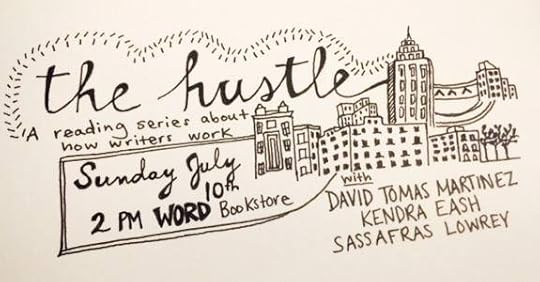 the hustle
A reading series about
how writers work
Sunday July
10th
2 PM WORD Bookstore
with
DAVID TOMAS MARTINEZ
KENDRA EASH
SASSAFRAS LOWREY